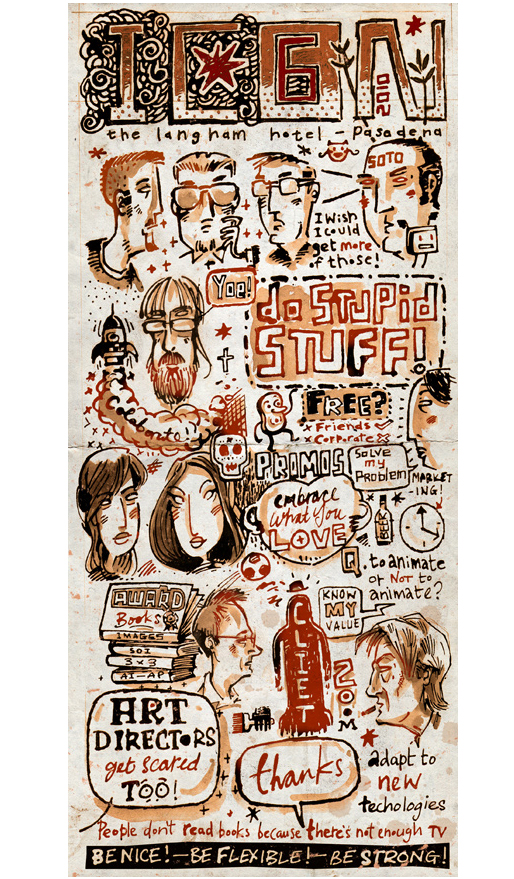 ICON
6
2010
the langham hotel - Pasadena
SOTO
I wish
I could
get more
of those!
Yoe!
do STUPID
STUFF!
celebrate!
FREE?
x Friends
x Corporate
PROMOS
Solve
my
Problem
MARKET
-ING!
embrace
what you
LOVE
BEER
Q. to animate
or NOT to
animate?
AWARD
Books
IMAGES
SOI
3x3
AI-AP
KNOW
MY
VALUE
CLIET
ZOOM
ART
DIRECTORS
get scared
TOO!
thanks
adapt to
new
techologies
People don't read books because there's not enough TV
BE NICE! - BE FLEXIBLE! - BE STRONG!